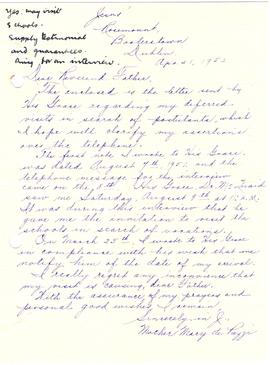 Yes. may visit
Schools.
Supply testimonial
and guarantees.
Ring for an interview.
Jesus!
Rosemount,
Booterstown
Dublin
April 1, 1952
Dear Reverend Father,
The enclosed is the letter sent by
His Grace regarding my deferred
visits in search of postulants, which
I hope will clarify my assertions
over the telephone.
The first note I wrote to His Grace
was dated August 7th 1951 and the
telephone message for the interview
came on the 8th. His Grace, Dr. McQuaid
saw me Saturday, August 9th at 12 P.M.
It was during this interview that he
gave me the invitation to visit the
schools in search of vocations.
On March 25th, I wrote to His Grace
in compliance with his wish that we
notify him of the date of my arrival.
I really regret any inconvenience that
my visit is causing, dear Father.
With the assurance of my prayers and
personal good wishes, I remain
Sincerely in J.
Mother Mary de Pazzi